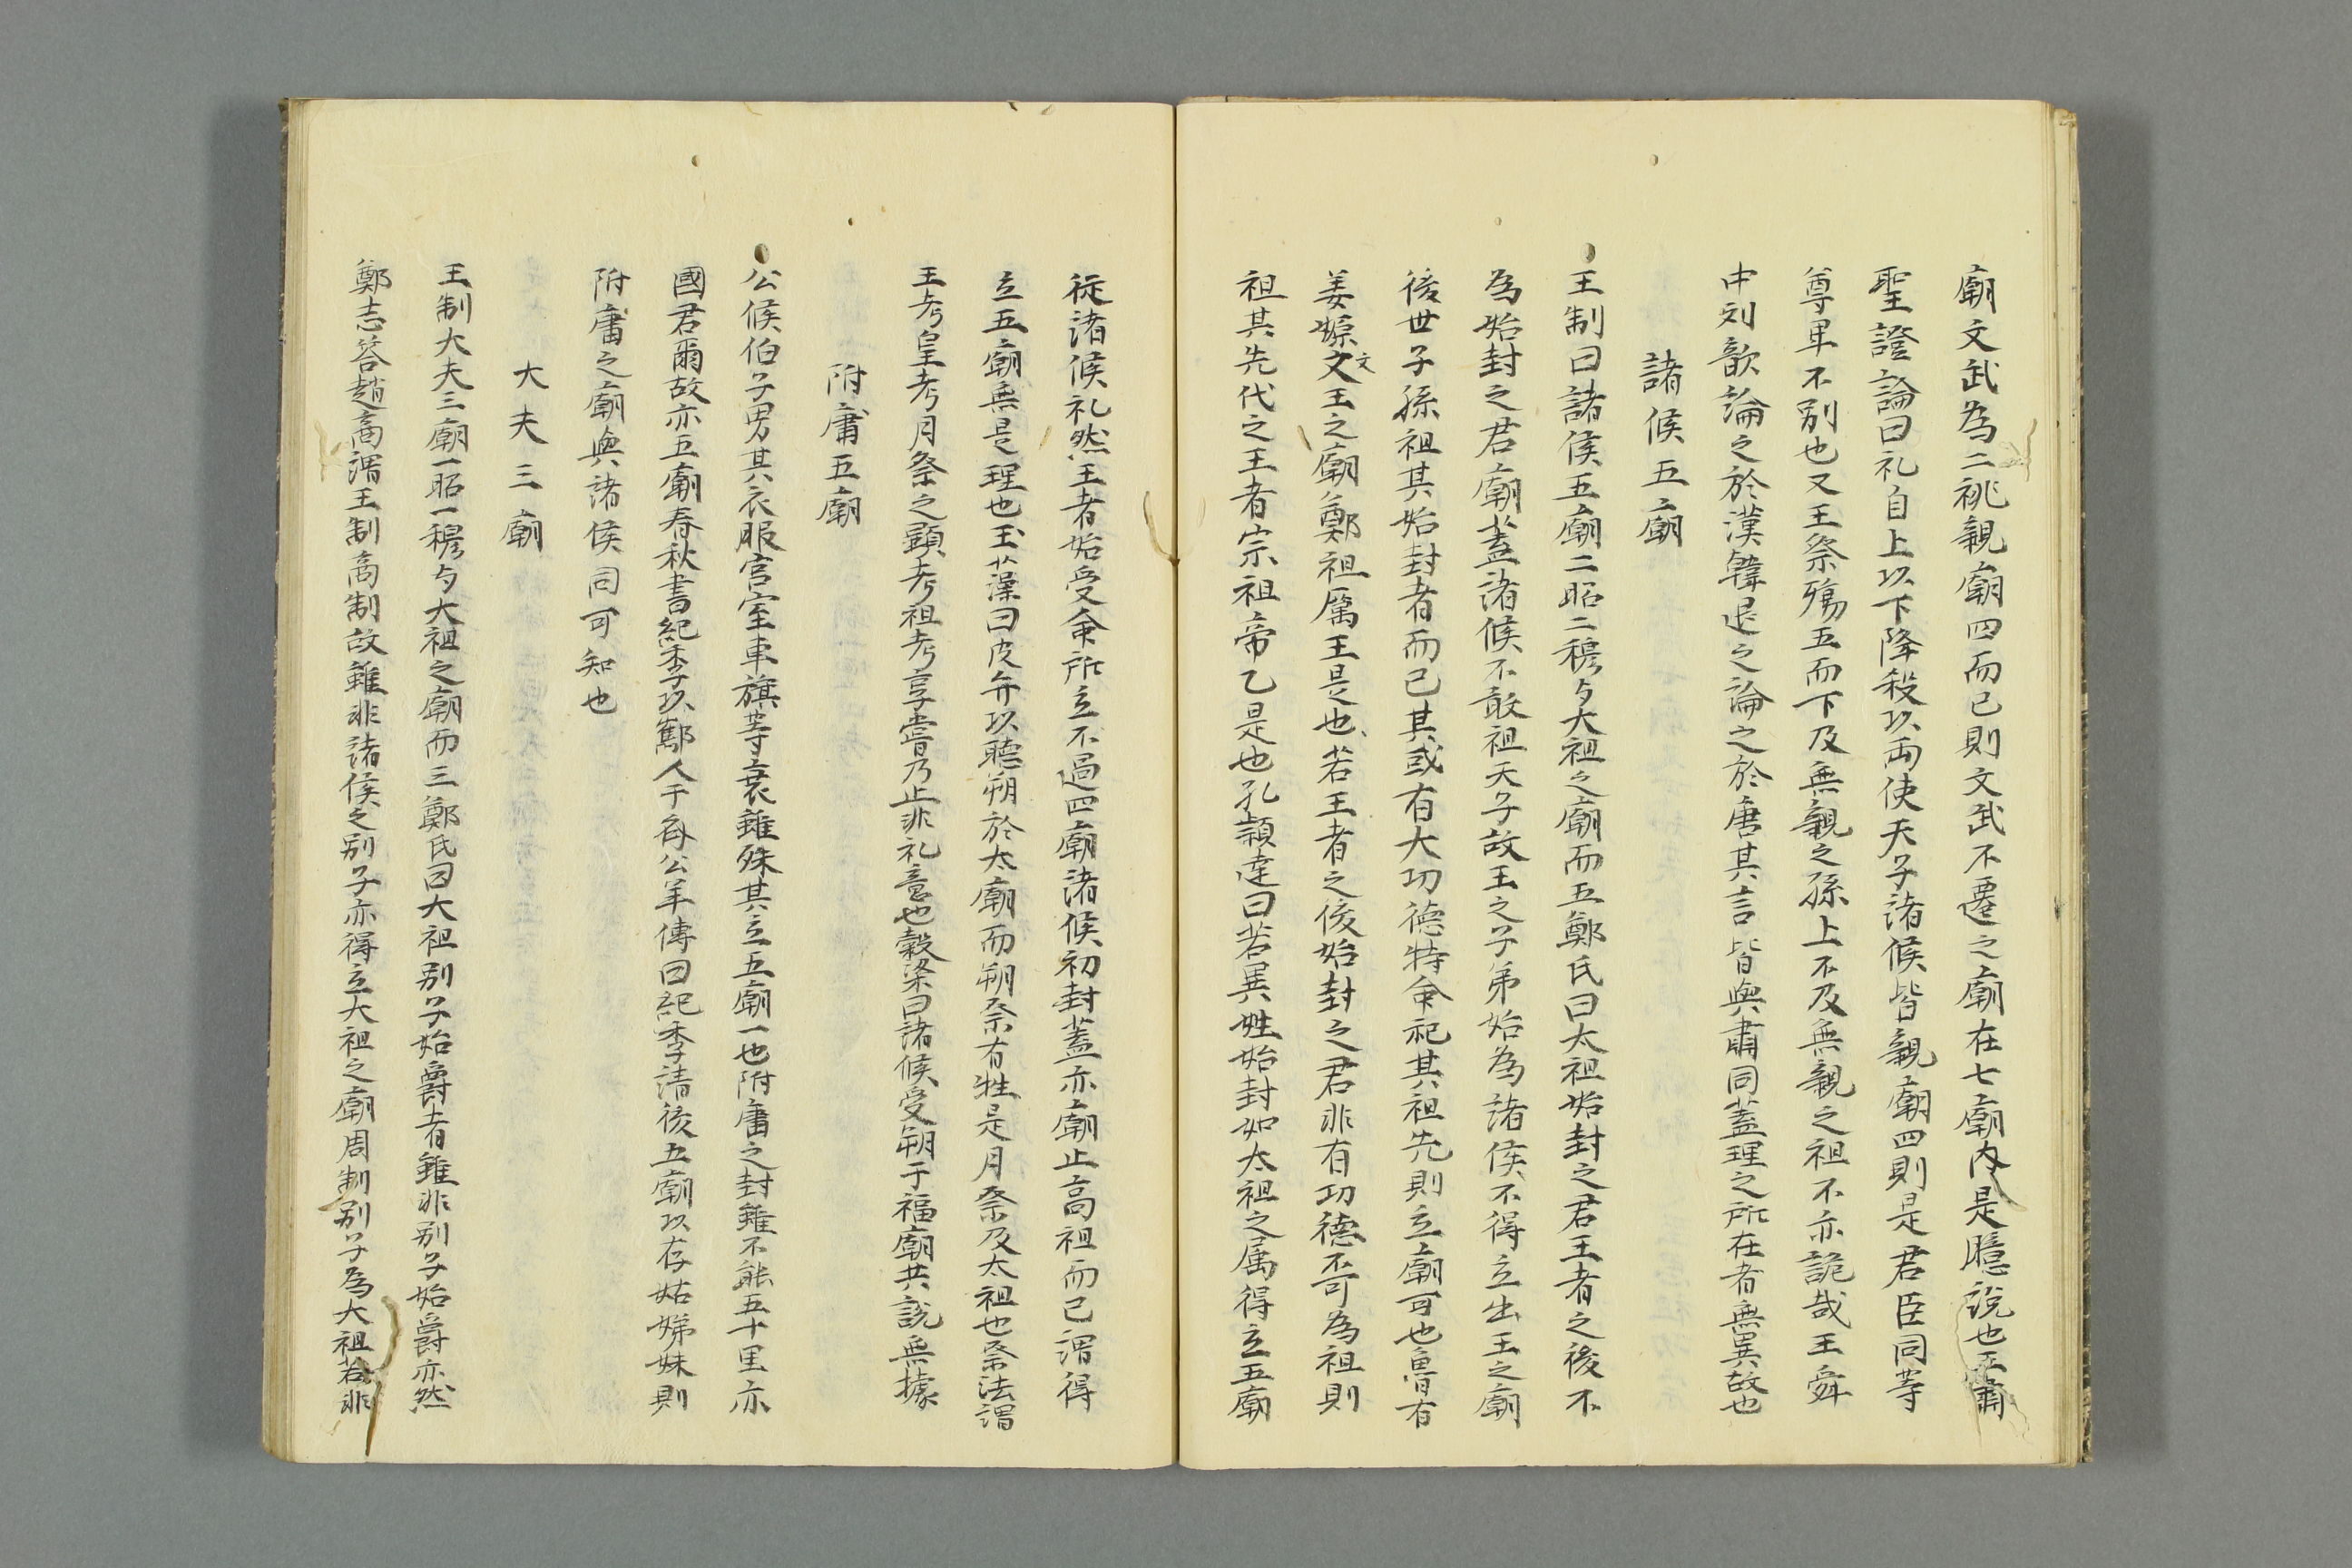 廟文武為二祧親廟四而已則文武不遷之廟在七廟內是臆說也王肅
聖證論曰礼自上以下降殺以両使天子諸侯皆親廟四則是君臣同等
尊卑不別也又王祭殤五而下及無親之孫上不及無親之祖不亦詭哉王舜
中刘歆論之於漢韓退之論之於唐其言皆與肅同蓋理之所在者無異故也
諸侯五廟
王制曰諸侯五廟二昭二穆与大祖之廟而五鄭氏曰太祖始封之君王者之後不
為始封之君廟蓋諸侯不敢祖天子故王之子弟始為諸侯不得立出王之廟
後世子孫祖其始封者而已其或有大功德特命祀其祖先則立廟可也魯有
姜嫄文王之廟鄭祖厲王是也若王者之後始封之君非有功德不可為祖則
祖其先代之王者宗祖帝乙是也孔穎達曰若異姓始封如太祖之属得立五廟
従諸侯礼然王者始受命所立不過四廟諸侯初封蓋亦廟止高祖而已謂得
立五廟無是理也玉藻曰皮弁以聴朔於太廟而朔祭有牲是月祭及太祖也祭法謂
王考皇考月祭之顕考祖考享嘗乃止非礼意也穀梁曰諸侯受朔于禰廟共説無據
附庸五廟
公侯伯子男其衣服宮室車旗等衰雖殊其立五廟一也附庸之封雖不能五十里亦
國君爾故亦五廟春秋書紀季以酅入于斉公羊傳曰紀季請後五廟以存姑娣妹則
附庸之廟與諸侯同可知也
大夫三廟
王制大夫三廟一昭一穆与大祖之廟而三鄭氏曰大祖別子始爵者雖非別子始爵亦然
鄭志答趙商謂王制商制故雖非諸侯之別子亦得立大祖之廟周制別子為大祖若非